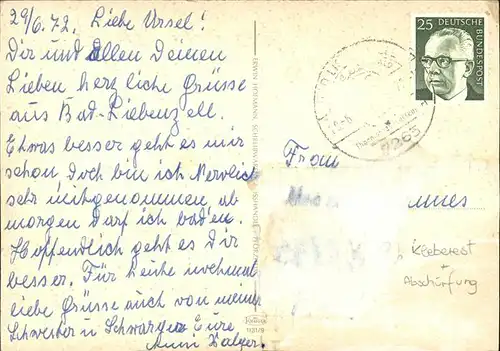 29/6.72. Liebe Ursel!
Dir und Allen Deinen
Lieben herzliche Grüsse
aus Bad-Liebenzell.
Etwas besser geht es mir
schon Doch bin ich Nervlich
sehr mitgenommen, ab
morgen Darf ich baden.
Hoffendlich geht es Dir
besser. Für heute
liebe Grüsse auch von meine
Schwester u Schwager Eure
Anni
ERWIN HOFMANN
25 DEUTSCHE
BUNDESPOST
7265
Frau
Kleberest
+
Abschürfung